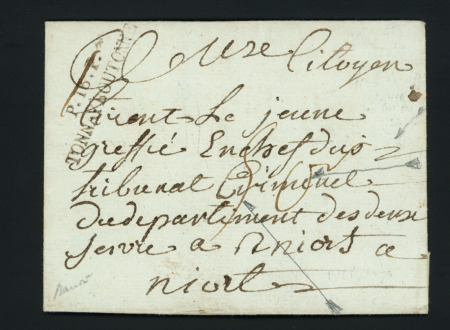 P. 16. P.
TONNAY BOUTONNE
Citoyen
le jeune
greffié En chef du
tribunal Criminel
du departement des deux
servre a niort a
niort